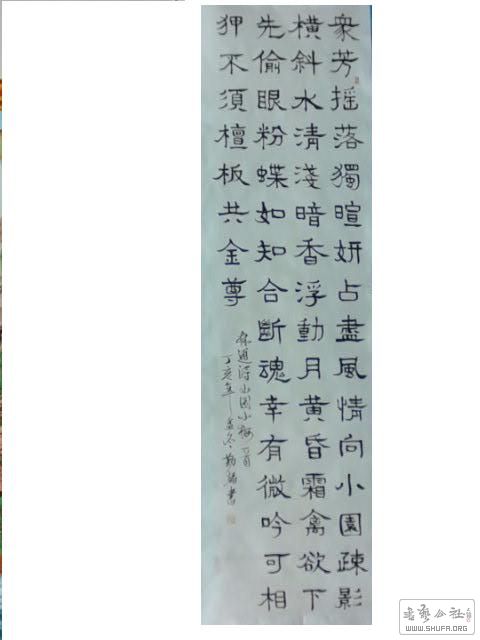 衆芳摇落獨暄妍占盡風情向小園疎影
橫斜水清淺暗香浮動月黃昏霜禽欲下
先偷眼粉蝶如知合斷魂幸有微吟可相
狎不須檀板共金尊
林逋詩山園小梅一首
丁亥年孟冬勤 書
WWW.SHUFA.ORG